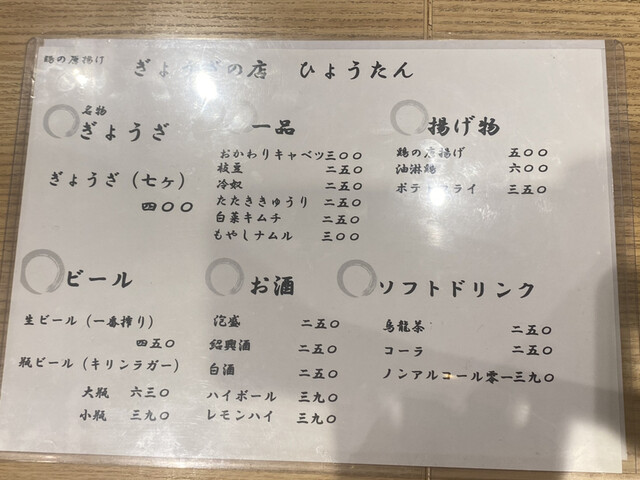 鶏の唐揚げ
ぎょうざの店 ひょうたん
名物
ぎょうざ
ぎょうざ（七ヶ）
四〇〇
一品
おかわりキャベツ三〇〇
枝豆 二五〇
冷奴 二五〇
たたききゅうり 二五〇
白菜キムチ 二五〇
もやしナムル 三〇〇
揚げ物
鶏の唐揚げ 五〇〇
油淋鶏 六〇〇
ポテトフライ 三五〇
ビール
生ビール（一番搾り）
四五〇
瓶ビール（キリンラガー）
大瓶 六三〇
小瓶 三九〇
お酒
泡盛 二五〇
紹興酒 二五〇
白酒 二五〇
ハイボール 三九〇
レモンハイ 三九〇
ソフトドリンク
烏龍茶 二五〇
コーラ 二五〇
ノンアルコール零一三九〇